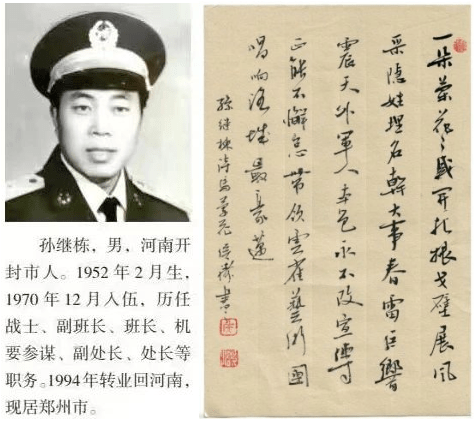 孙继栋，男，河南开
封市人。1952年2月生，
1970年12月入伍，历任
战士、副班长、班长、机
要参谋、副处长、处长等
职务。1994年转业回河南，
现居郑州市。
一朵荣花々盛开扎根戈壁展风
采隐姓埋名幹大事春雷巨響
震天外軍人本色永不改宣傳
正能不懈怠带领雲雀藝術團
唱响洛城最豪迈
孙继栋诗